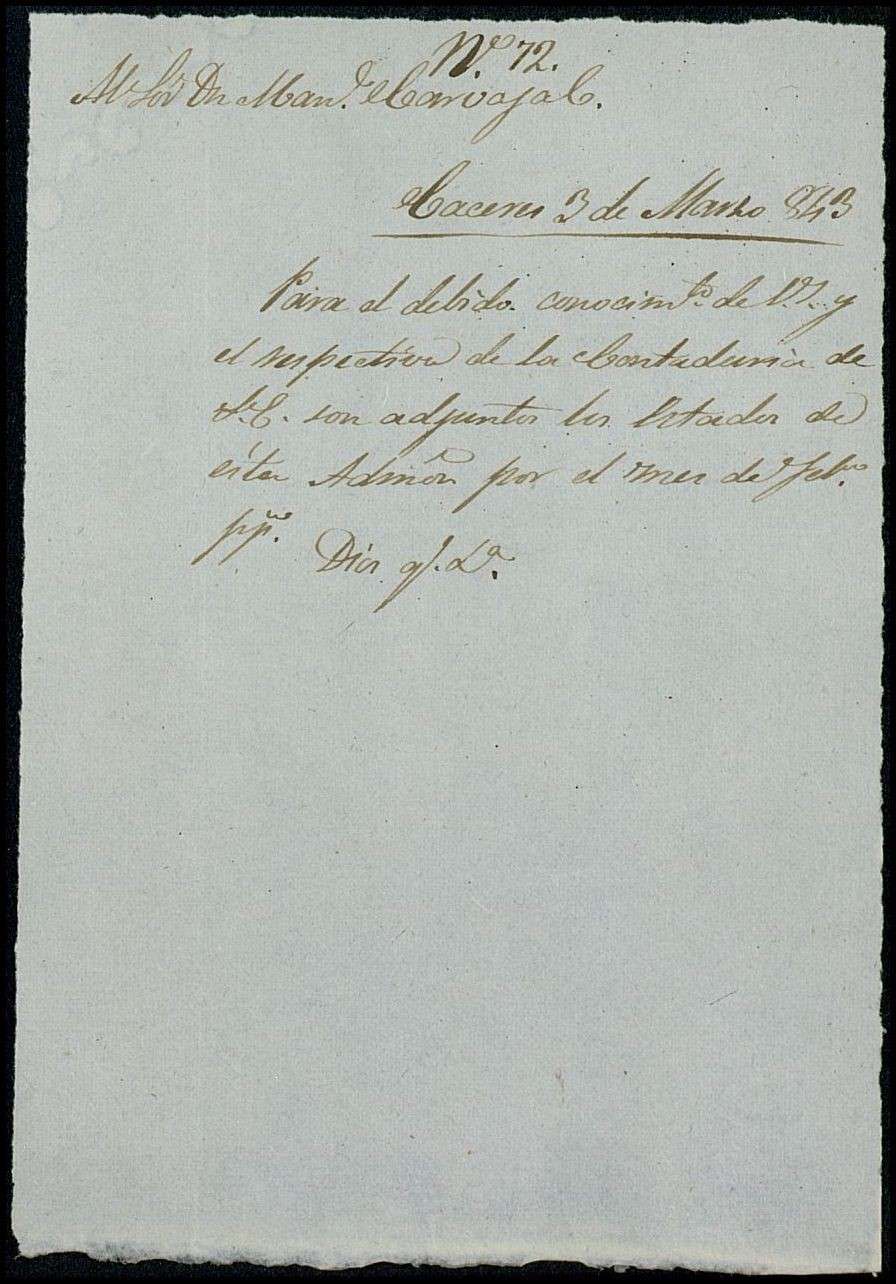 Nº 72.
Mr Sor Dn Manl. Carvajal.
Caceres 3 de Marzo 843
Para el debido conocimto. de V.S. y
el respectivo de la Contaduria de
S.E. son adjuntos los Estados de
ésta Admón por el mes de Febo.
ppdo.
Dios gl. La.